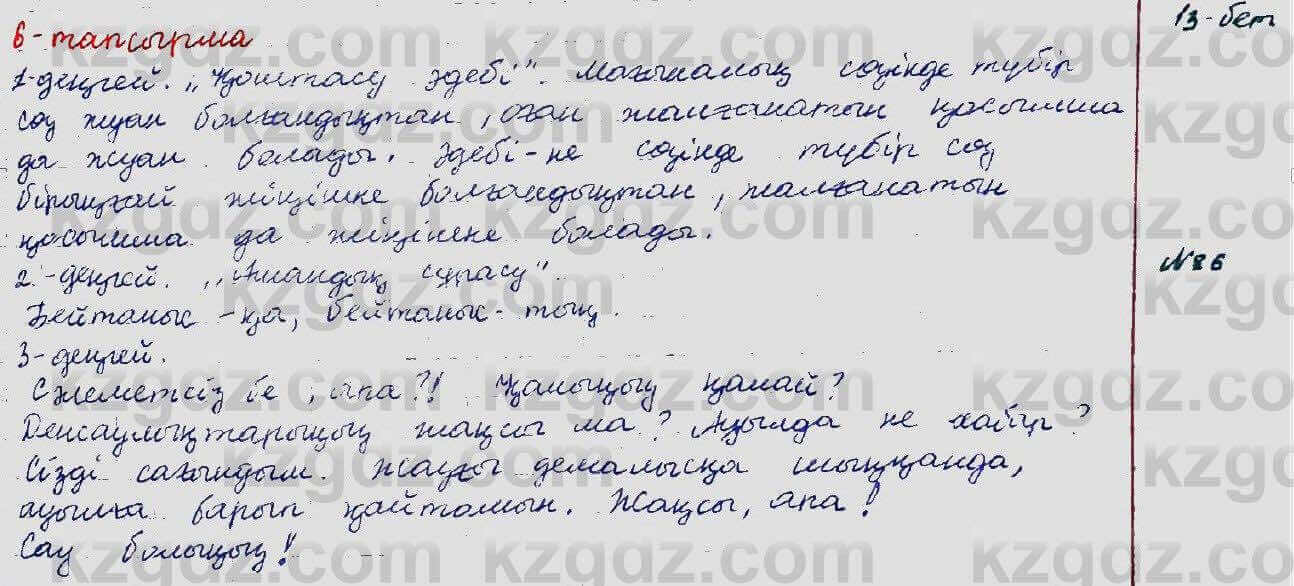 13-бет
6-тапсырма
1-деңгей. „Қоштасу әдебі". Мағыналық сөзінде түбір
сөз жуан болғандықтан, оған жалғанатын қосымша
да жуан болады. Әдебі-не сөзінде түбір сөз
бірыңғай жіңішке болғандықтан, жалғанатын
қосымша да жіңішке болады.
№86
2.-деңгей. „Амандық сұрасу".
Бейтаныс -қа, бейтаныс- тың.
3-деңгей.
Сәлеметсіз бе, апа?! Қалыңыз қалай?
Денсаулықтарыңыз жақсы ма? Ауылда не хабар?
Сізді сағындым. Жазғы демалысқа шыққанда,
ауылға барып қайтамын. Жақсы, апа!
Сау болыңыз!
kzgdz.com